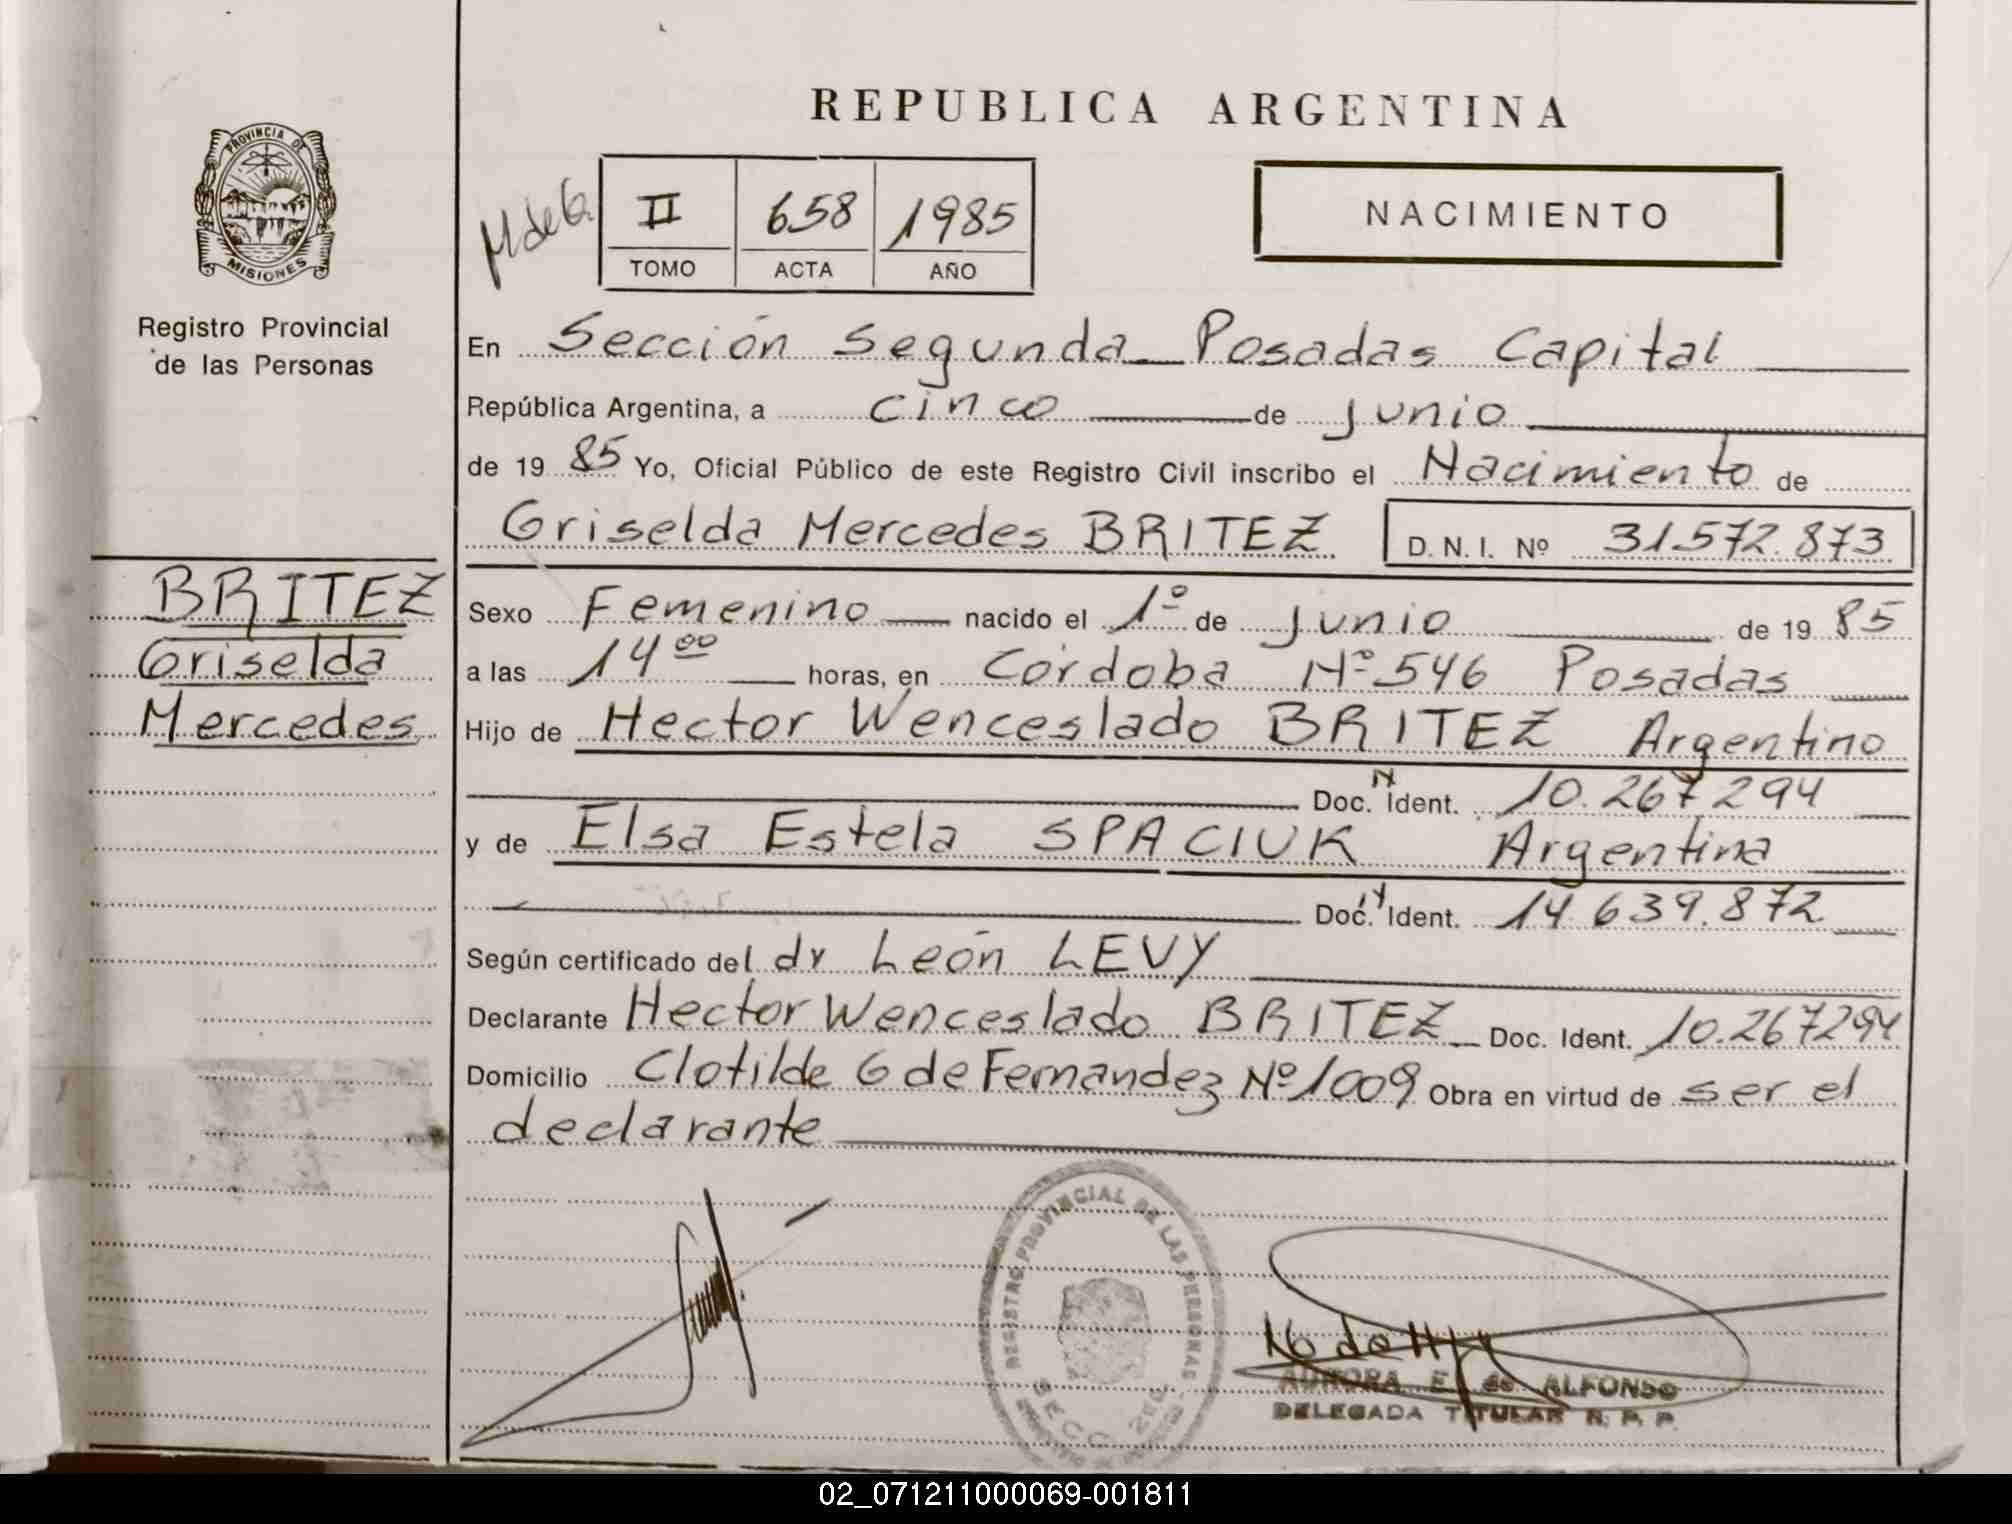 REPUBLICA ARGENTINA
PROVINCIA DE
MISIONES
Registro Provincial
de las Personas
M de G.
II 658 1985
TOMO ACTA AÑO
NACIMIENTO
En Sección Segunda Posadas Capital
República Argentina, a cinco de junio
de 19 85 Yo, Oficial Público de este Registro Civil inscribo el Nacimiento de
Griselda Mercedes BRITEZ D. N. I. Nº 31.572.873
BRITEZ
Griselda
Mercedes
Sexo Femenino nacido el 1º de junio de 19 85
a las 14 00 horas, en Córdoba Nº 546 Posadas
Hijo de Hector Wenceslado BRITEZ Argentino
Doc. N Ident. 10.267294
y de Elsa Estela SPACIUK Argentina
Doc. N Ident. 14.639.872
Según certificado del dr León LEVY
Declarante Hector Wenceslado BRITEZ Doc. Ident. 10.267294
Domicilio Clotilde G de Fernandez Nº 1009 Obra en virtud de ser el
declarante
REGISTRO PROVINCIAL DE LAS PERSONAS
AURORA E. de ALFONSO
DELEGADA TITULAR R. P. P.
02_071211000069-001811